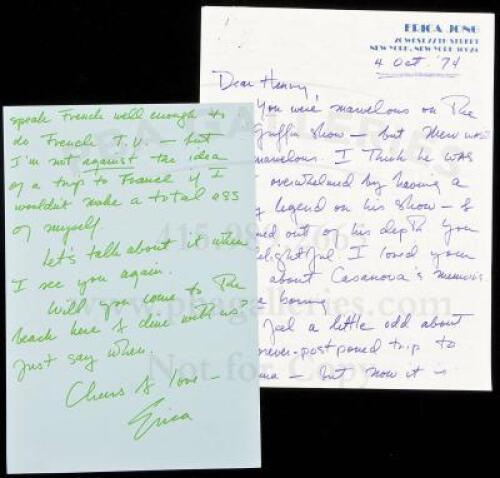 ERICA JONG
20 WEST 77TH STREET
NEW YORK, NEW YORK 10024
4 Oct. '74
Dear Henry,
You were marvelous on The
Griffin Show — but Merv wasn't
marvelous. I think he was
overwhelmed by having a
legend on his show — &
out of his depth. You
delightful. I loved your
about Casanova's memoirs
boring
feel a little odd about
never-postponed trip to
— but now it is
speak French well enough to
do French T.V. — but
I'm not against the idea
of a trip to France if I
wouldn't make a total ass
of myself.
Let's talk about it when
I see you again.
Will you come to the
beach here & dine with us?
Just say when.
Cheers & love —
Erica
PBA GALLERIES
www.pbagalleries.com
Not for Copy